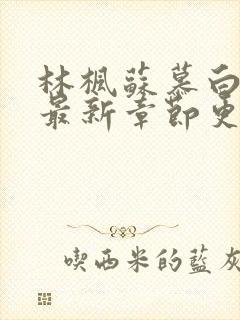 林楓蘇慕白
最新章節更
喫西米的藍灰